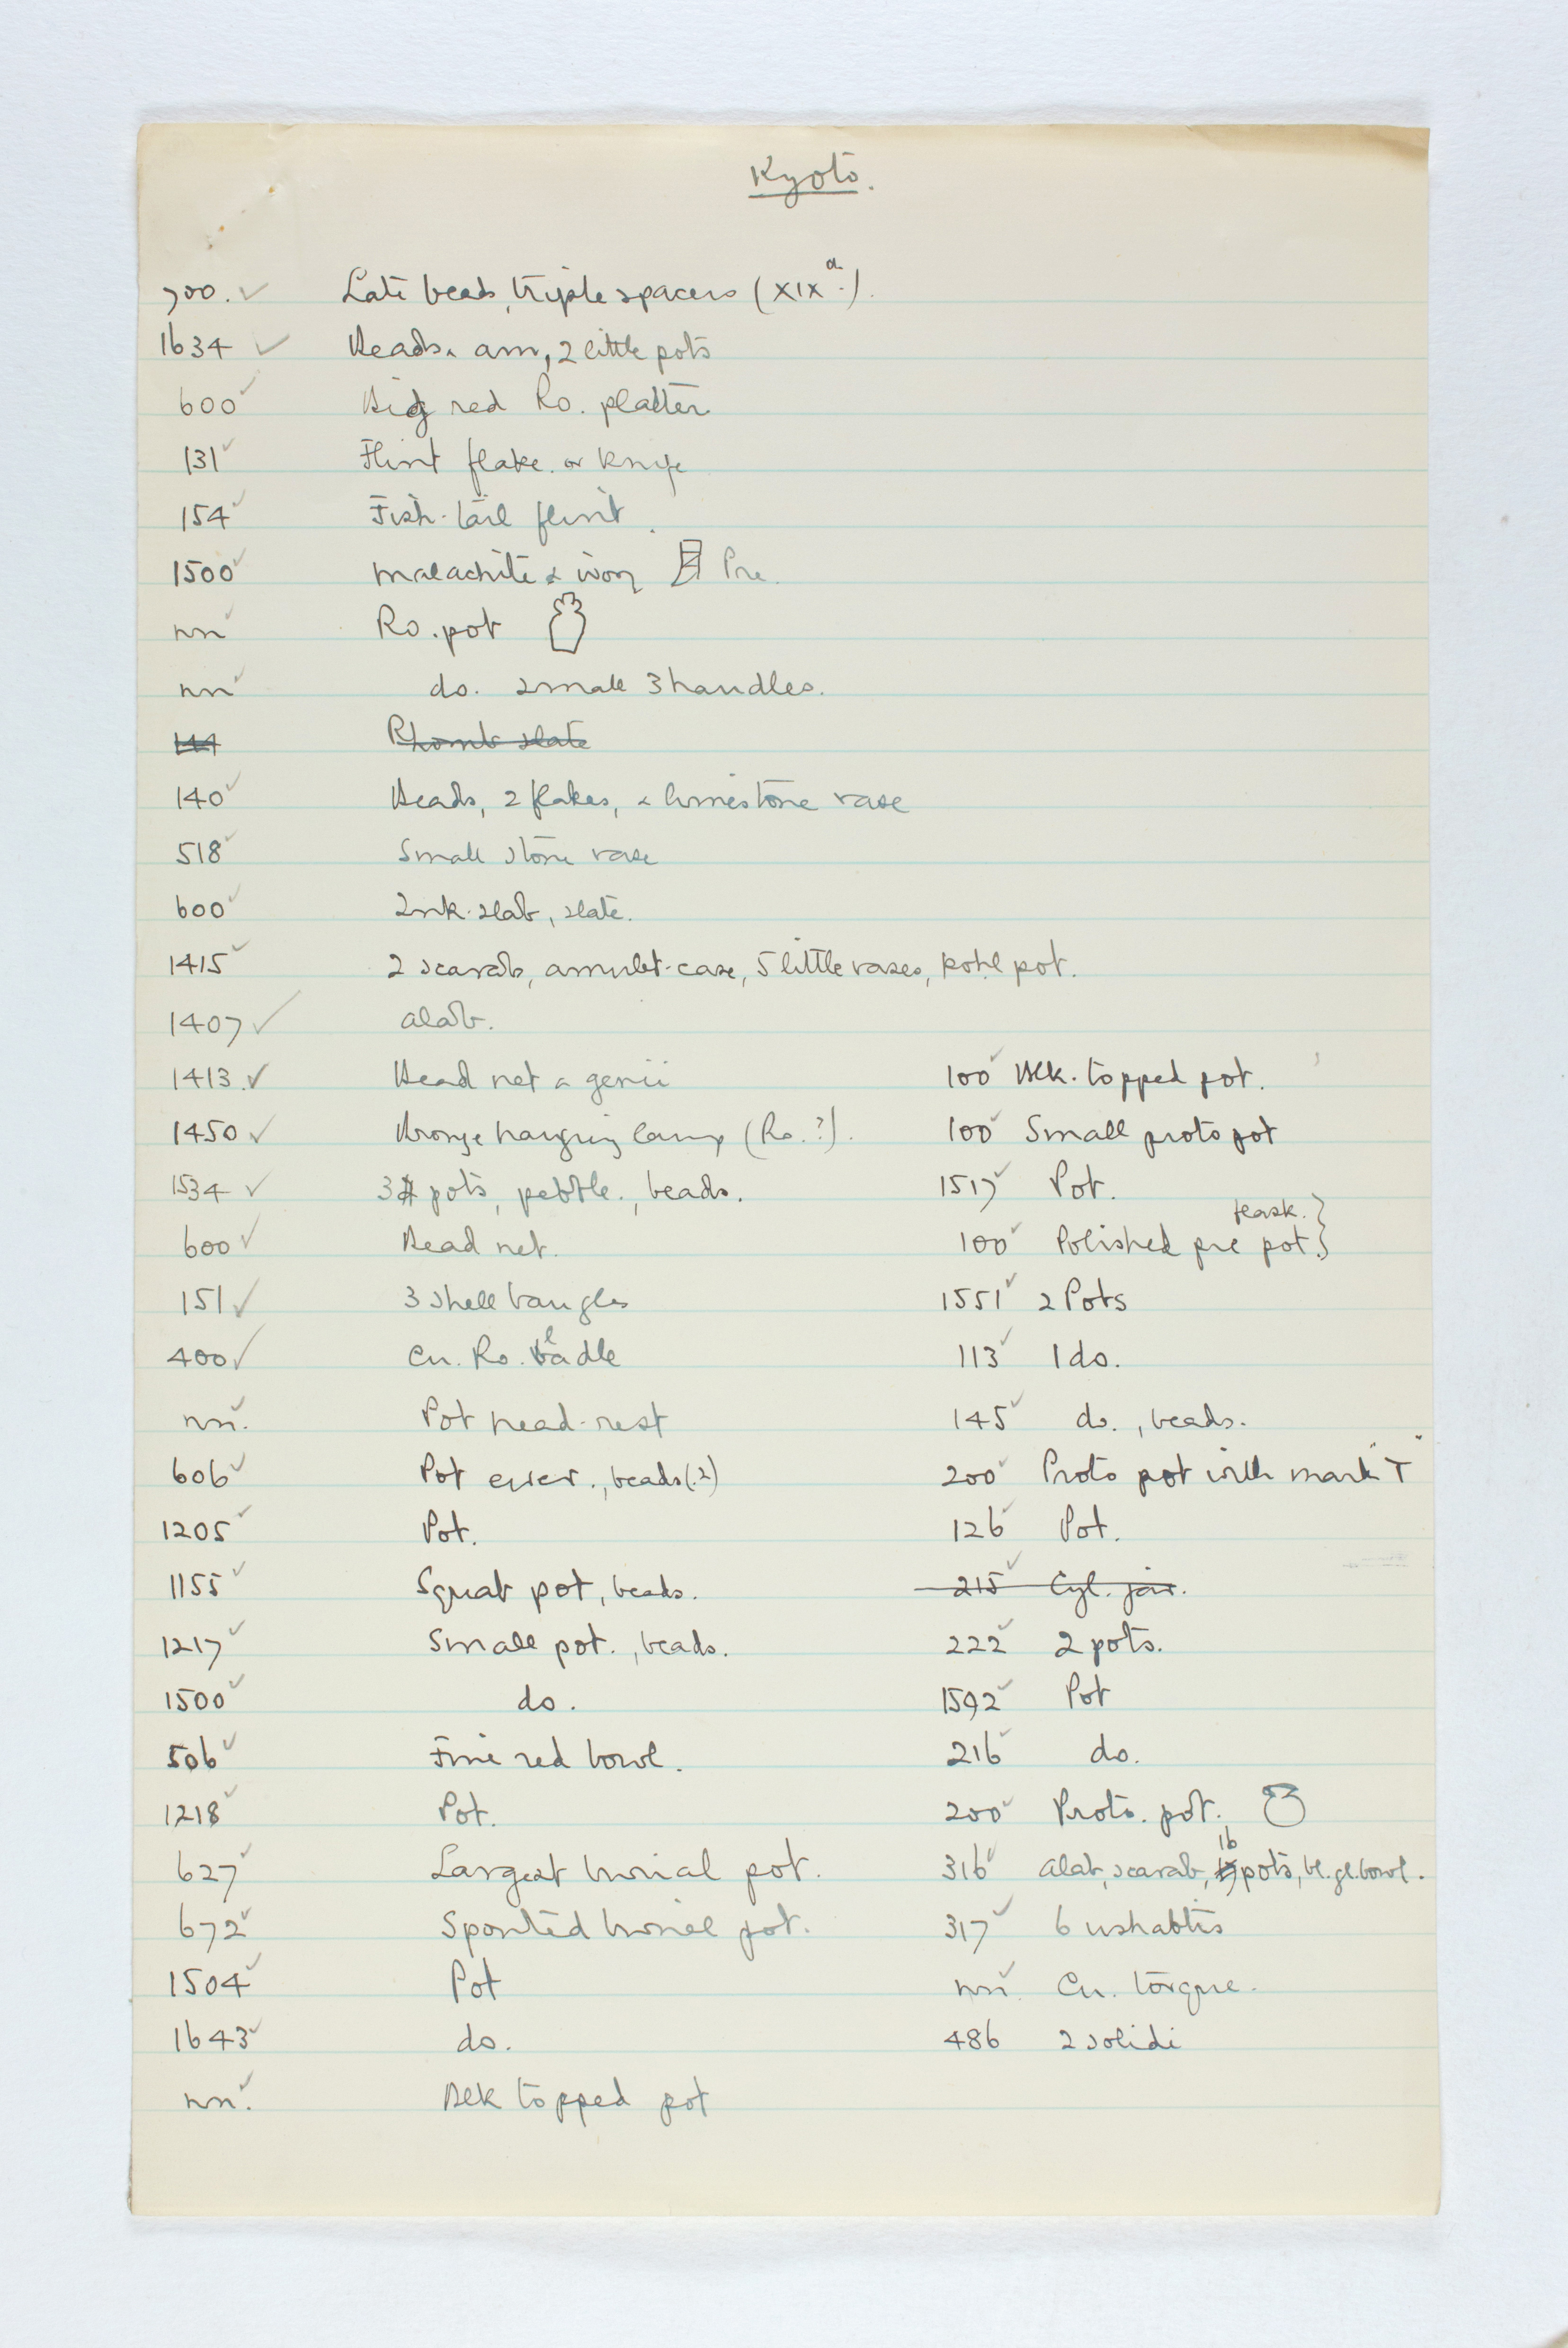 Kyoto.
700. ✓ Late beads, triple spacers (XIXa.).
1634 ✓ Beads & am, 2 little pots
600 ✓ Big red Ro. platter
131 ✓ Flint flake or knife
154 ✓ Fish-tail flint.
1500 ✓ Malachite & ivory Pre.
nn ✓ Ro. pot
nn ✓ do. small 3 handles.
144 Rhomb slate
140 ✓ Beads, 2 flakes, & limestone vase
518 ✓ Small stone vase
600 ✓ Ink-slab, slate.
1415 ✓ 2 scarabs, amulet-case, 5 little vases, kohl pot.
1407 ✓ alab.
1413. ✓ Bead net & genii
1450 ✓ Bronze hanging lamp (Ro.?).
1534 ✓ 3 pots, pebble., beads.
600 ✓ Bead net.
151 ✓ 3 shell bangles
400 ✓ Cu. Ro. ladle
nn. ✓ Pot head-rest
606 ✓ Pot ewer., beads (.2)
1205 ✓ Pot.
1155 ✓ Squat pot, beads.
1217 ✓ Small pot., beads.
1500 ✓ do.
506 ✓ Fine red bowl.
1218 ✓ Pot.
627 ✓ Largest burial pot.
672 ✓ Spouted burial pot.
1504 ✓ Pot
1643 ✓ do.
nn. ✓ Blk topped pot
100 ✓ Blk. topped pot.
100 ✓ Small proto pot
1517 ✓ Pot.
100 ✓ Polished pre pot. flask. }
1551 ✓ 2 Pots
113 ✓ 1 do.
145 ✓ do., beads.
200 ✓ Proto pot with mark "T"
126 ✓ Pot.
215 ✓ Cyl. jar.
222 ✓ 2 pots.
1592 ✓ Pot
216 ✓ do.
200 ✓ Proto. pot.
316 ✓ alab, scarab, 16 pots, bl. gl. bowl.
317 ✓ 6 ushabtis
nn. ✓ Cu. torque.
486 2 solidi